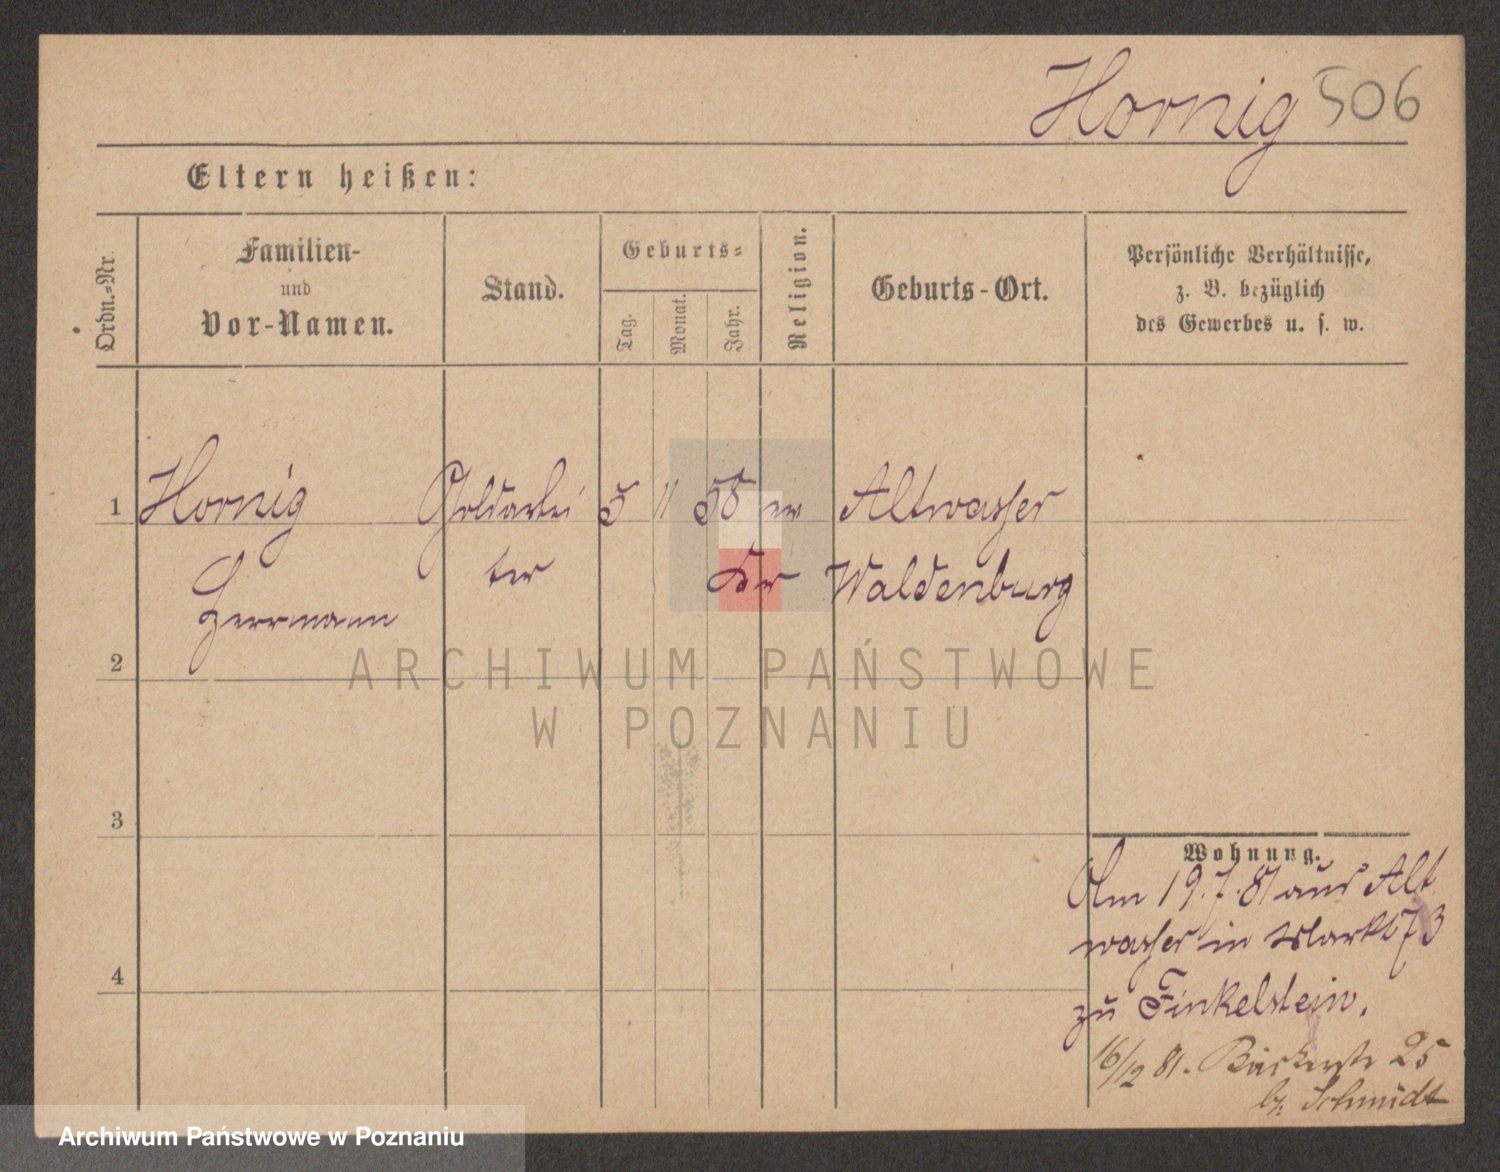 Hornig 506
Eltern heißen:
Ordn.=Nr.
Familien-
und
Vor-Namen.
Stand.
Geburts=
Tag.
Monat.
Jahr.
Religion.
Geburts-Ort.
Persönliche Verhältnisse,
z. B. bezüglich
des Gewerbes u. s. w.
1 Hornig Goldarbei 5 11 58 ev Altwasser
ter Waldenburg
Herrmann
2
ARCHIWUM PAŃSTWOWE
W POZNANIU
3
4
Wohnung.
Am 19.7.81 aus Alt
wasser in Markt 73
zu Finkelstein.
16/12 81. Bäckerstr 25
b. Schmidt
Archiwum Państwowe w Poznaniu